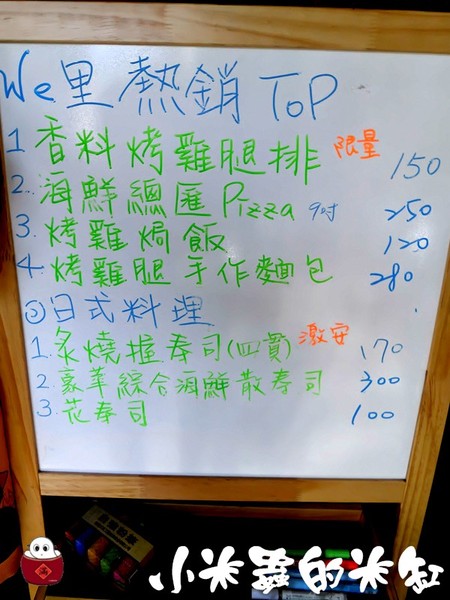 We里 熱銷 TOP
1 香料烤雞腿排 限量 150
2. 海鮮總匯Pizza 9吋 250
3. 烤雞焗飯 120
4. 烤雞腿手作麵包 280
◎日式料理
1. 炙燒握寿司(四貫) 激安 170
2. 豪華綜合海鮮散寿司 300
3. 花寿司 100
小米蟲的米缸